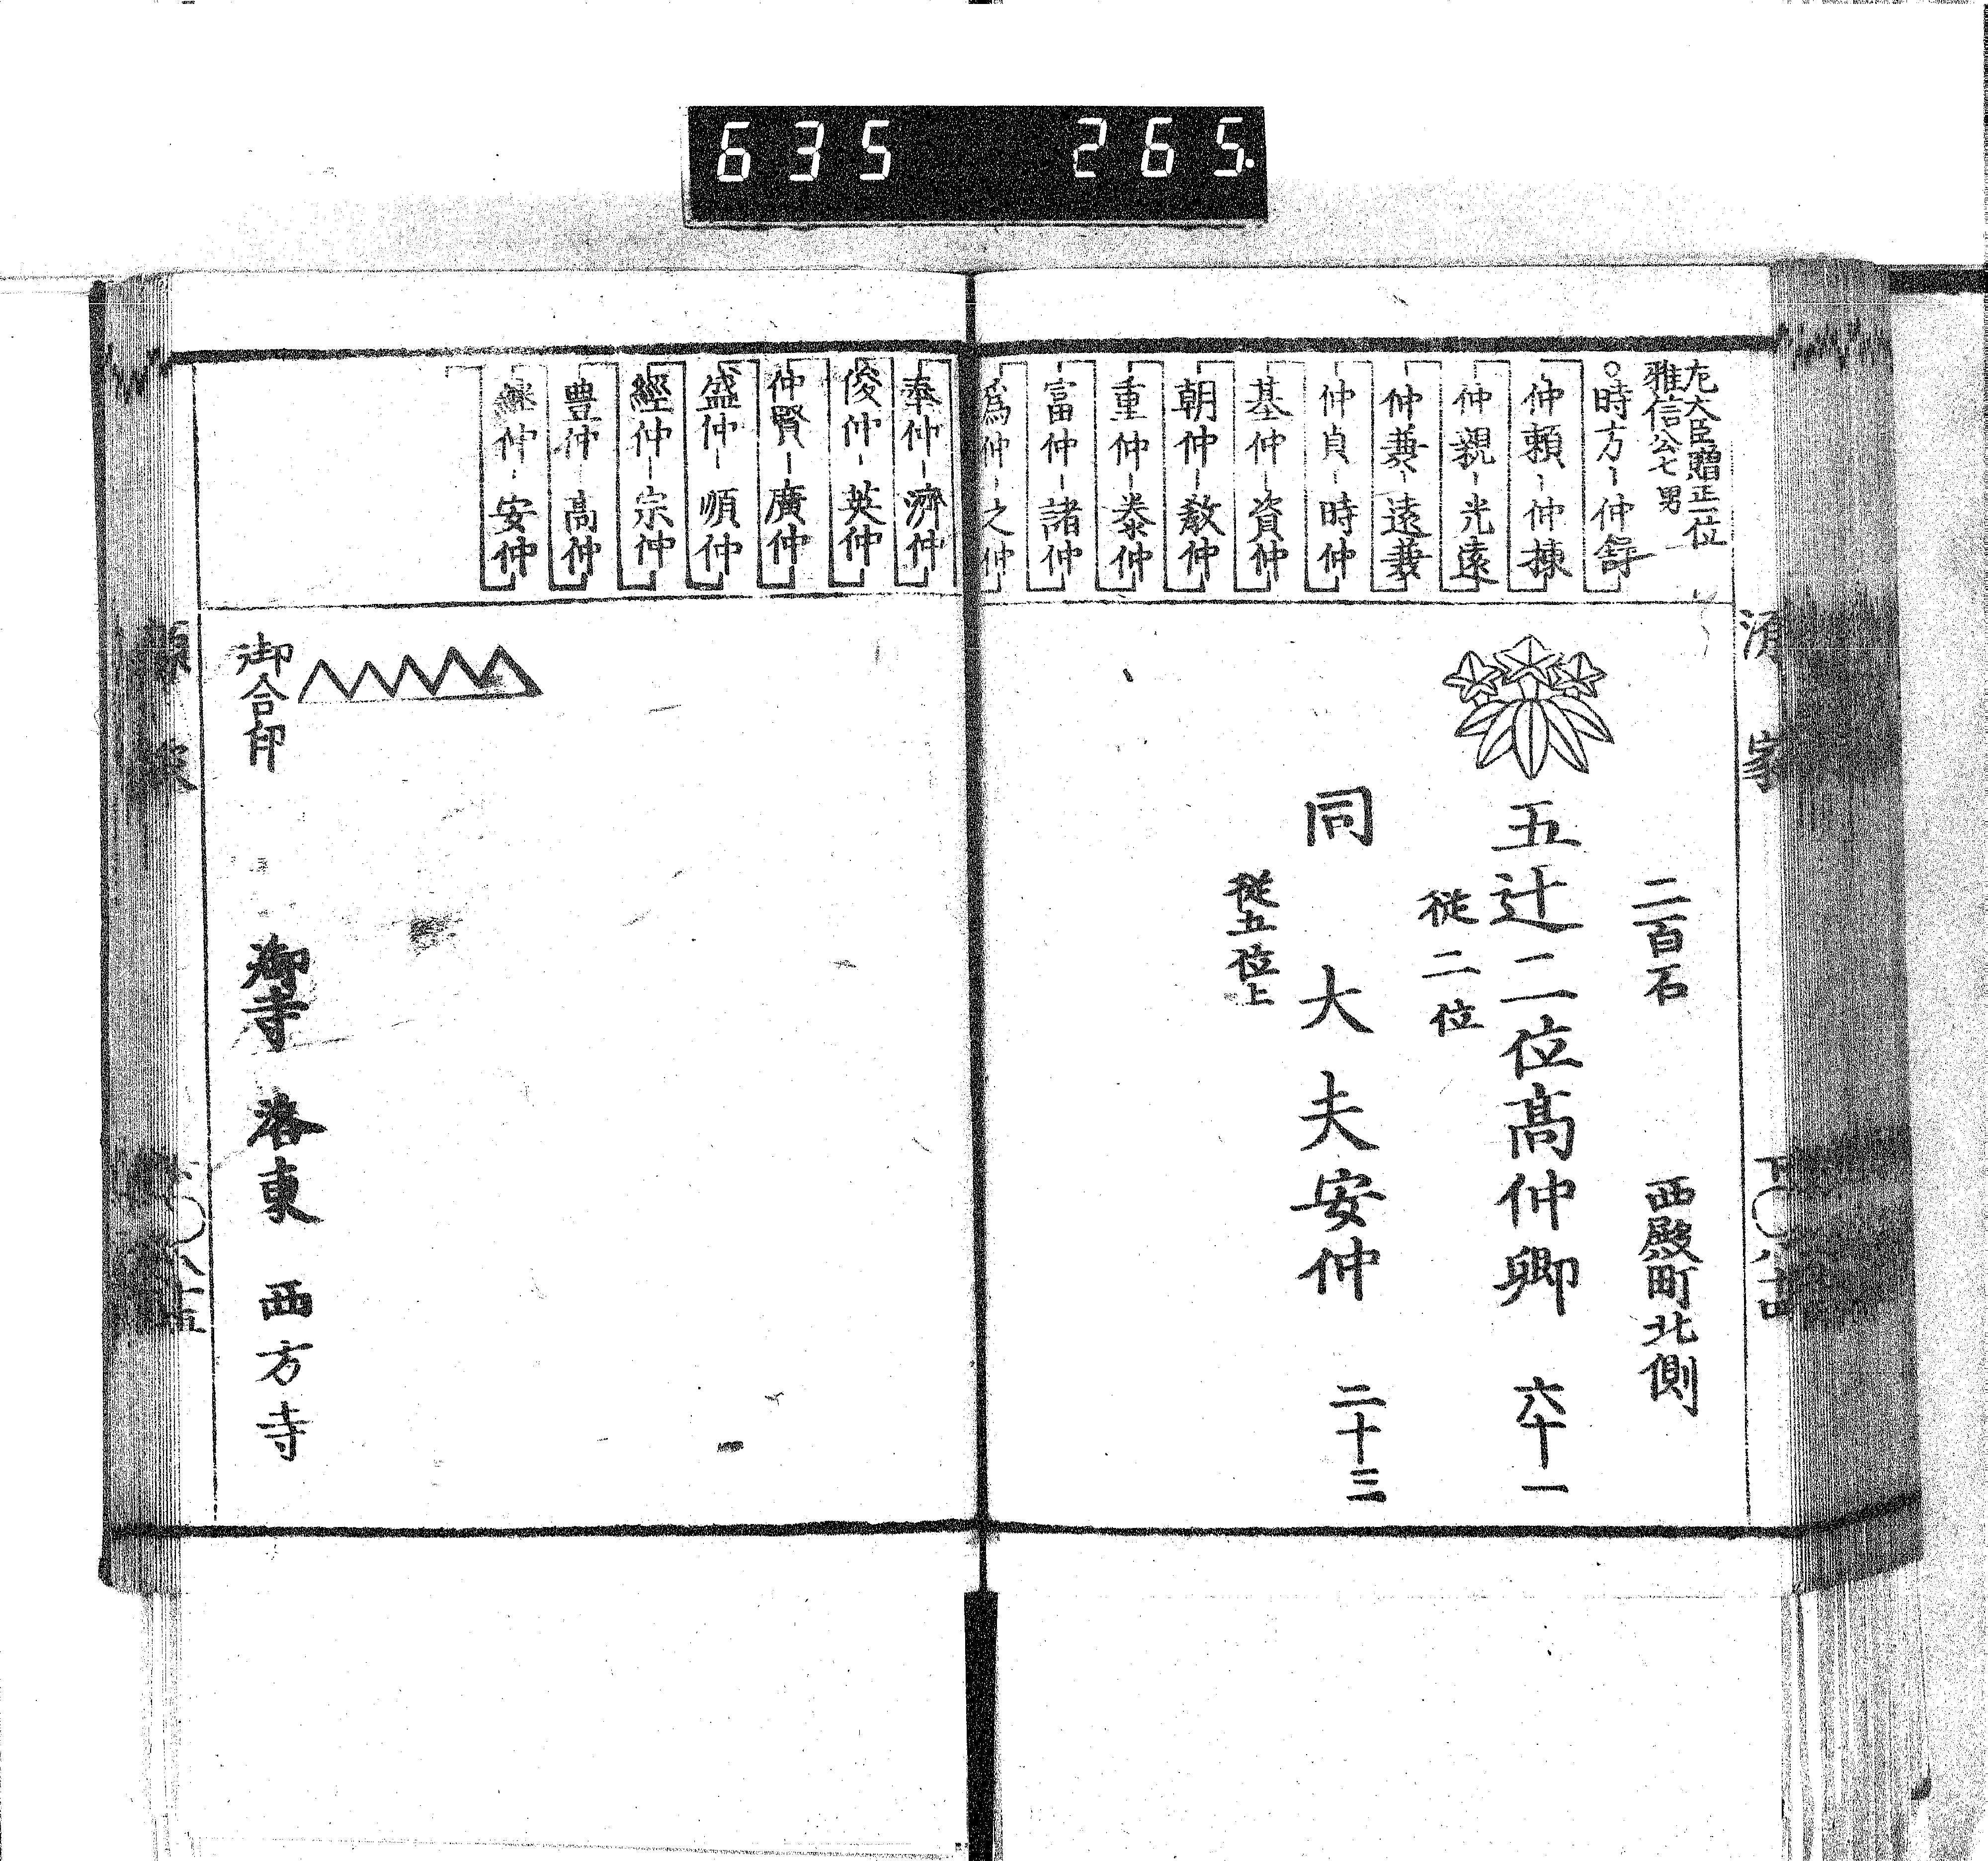 635 265.
左大臣贈正一位
雅信公七男
○時方－仲舒
仲頼－仲棟
仲親－光遠
仲兼－遠兼
仲貞－時仲
基仲－資仲
朝仲－教仲
重仲－泰仲
富仲－諸仲
為仲－之仲
二百石 西殿町北側
五辻二位高仲卿 六十一
従二位
同 大夫安仲 二十三
従五位上
奉仲－濟仲
俊仲－英仲
仲賢－廣仲
盛仲－順仲
經仲－宗仲
豊仲－高仲
継仲－安仲
御合印
御寺 洛東 西方寺